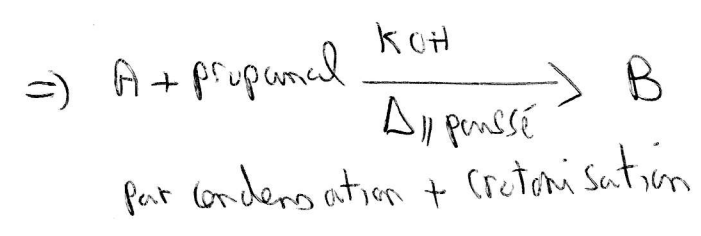 =) A + propanal KOH B
Δ // poussé
par condensation + crotonisation